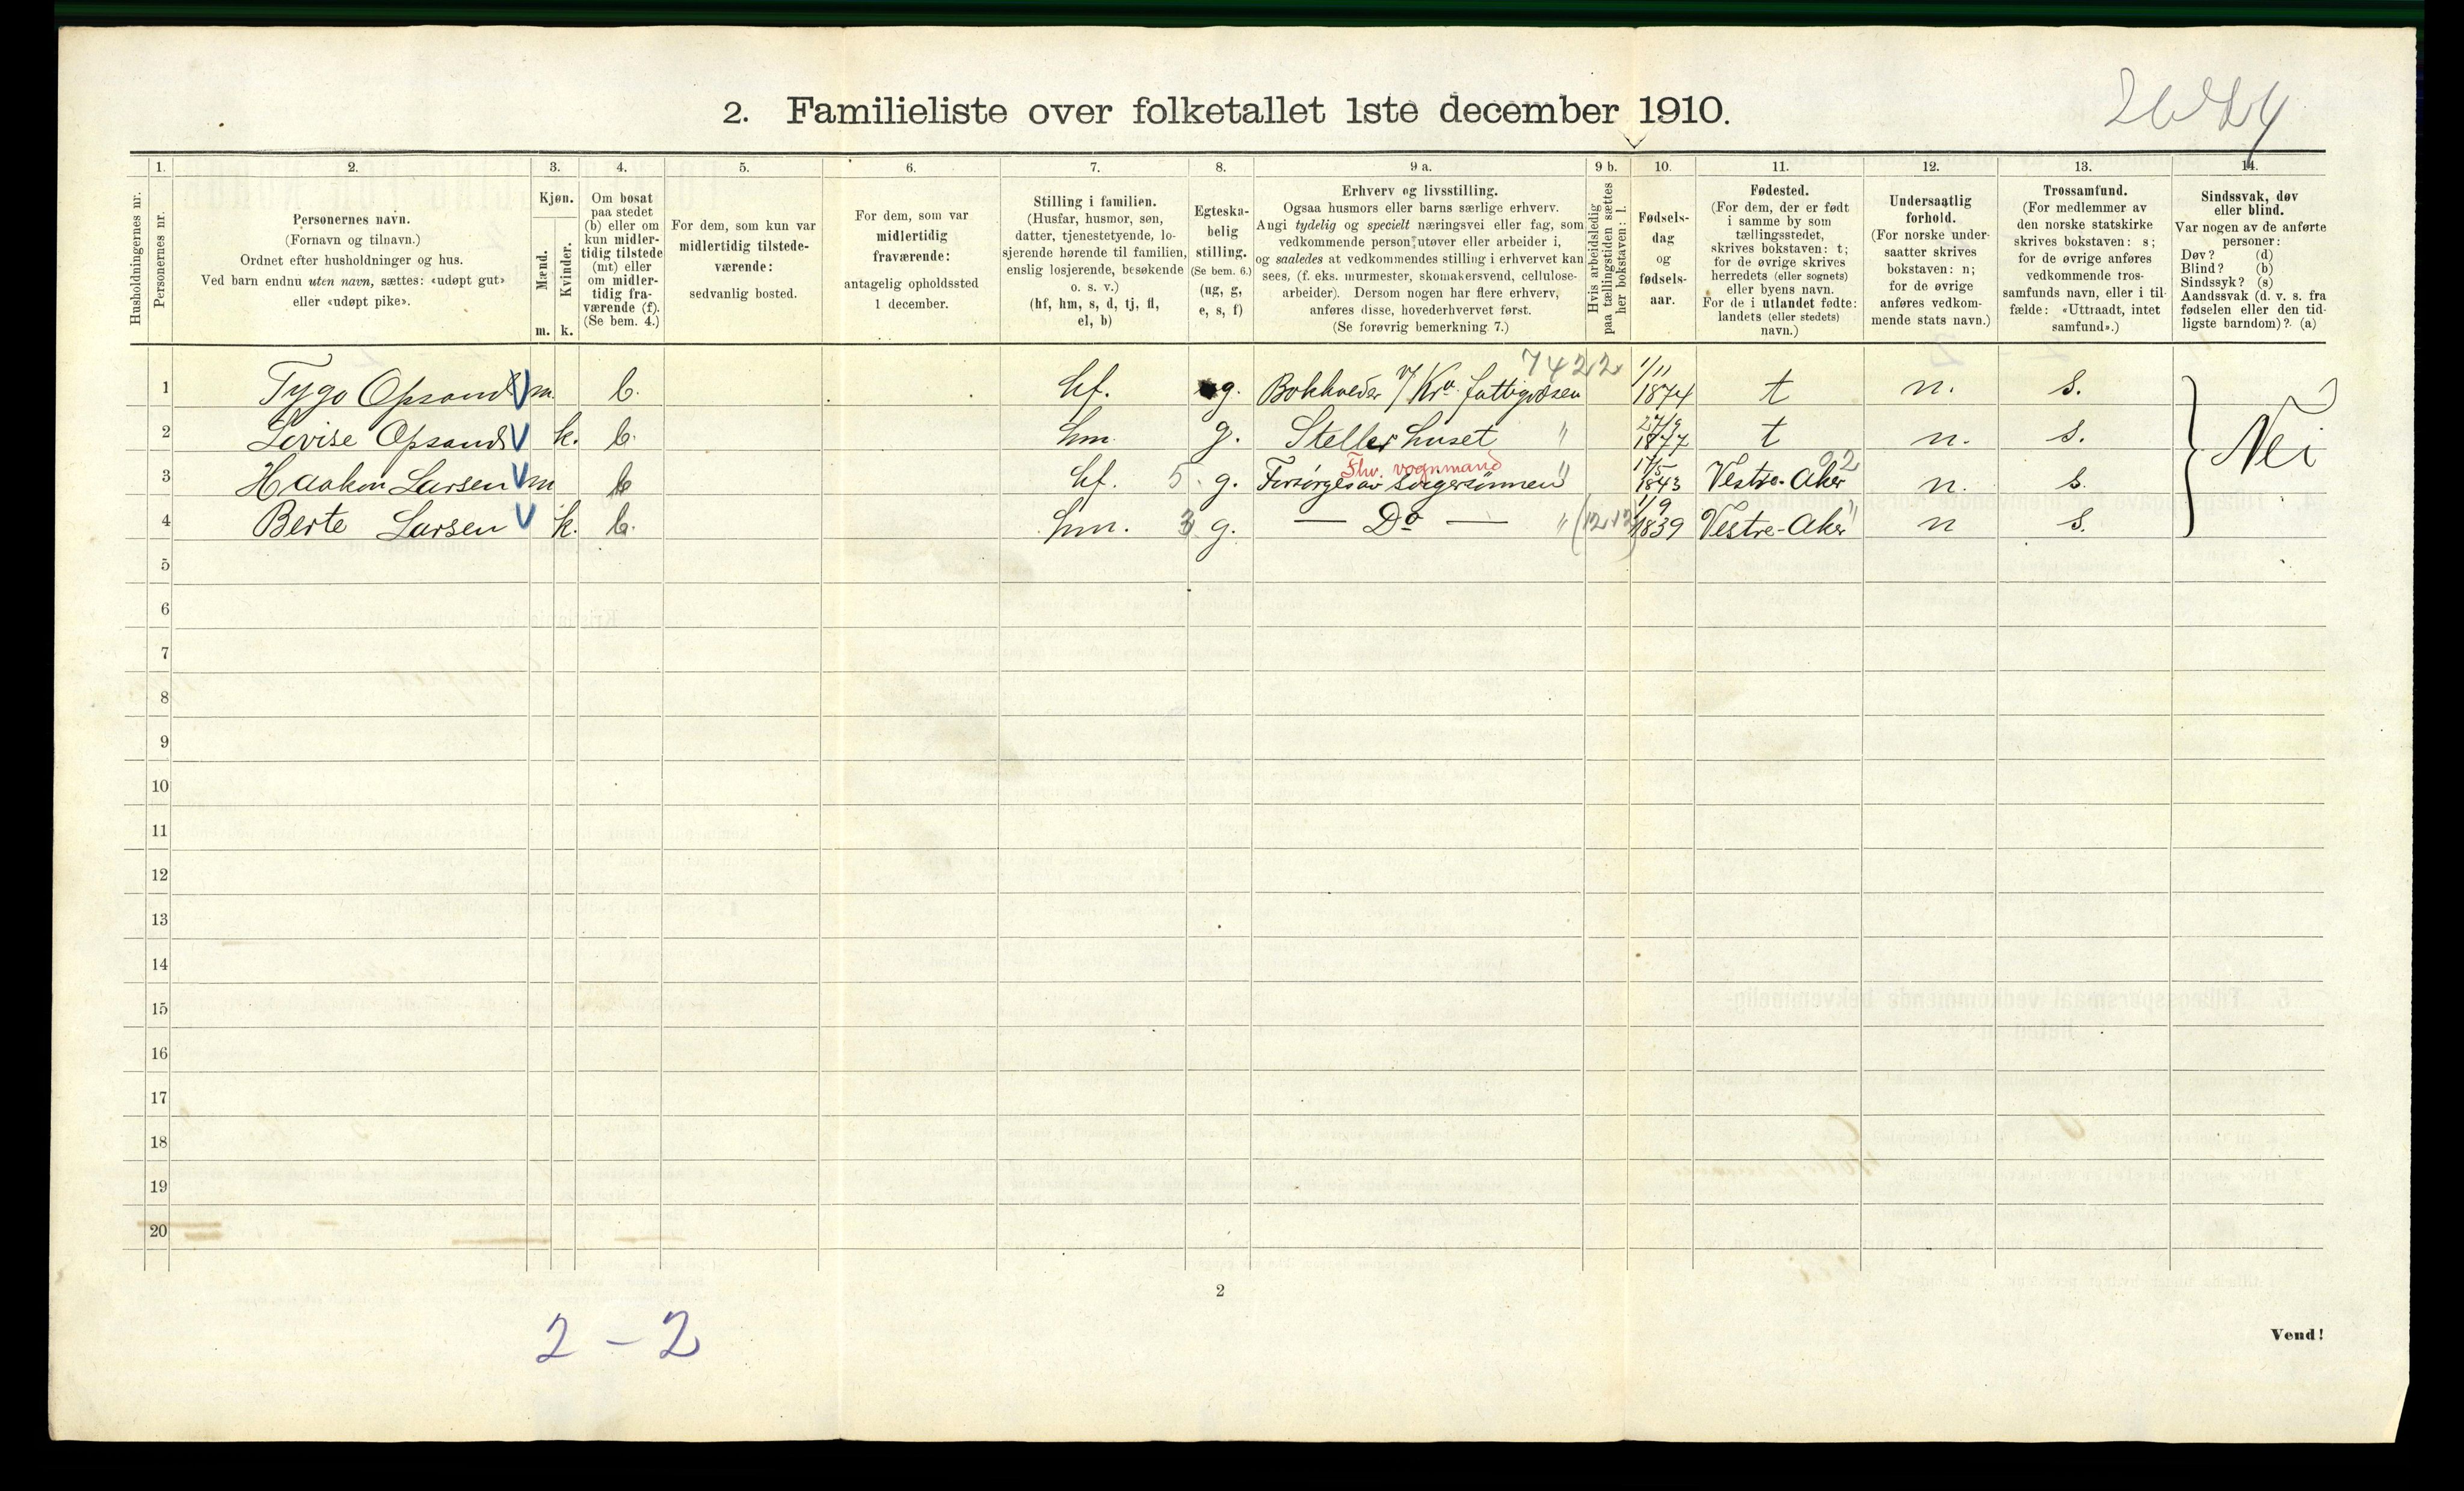 2. Familieliste over folketallet 1ste december 1910.
Husholdningernes nr.
1.
Personernes nr.
2.
Personernes navn.
(Fornavn og tilnavn.)
Ordnet efter husholdninger og hus.
Ved barn endnu uten navn, sættes: «udøpt gut»
eller «udøpt pike».
3.
Kjøn.
Mænd.
Kvinder.
m. k.
4.
Om bosat
paa stedet
(b) eller om
kun midler-
tidig tilstede
(mt) eller
om midler-
tidig fra-
værende (f).
(Se bem. 4.)
5.
For dem, som kun var
midlertidig tilstede-
værende:
sedvanlig bosted.
6.
For dem, som var
midlertidig
fraværende:
antagelig opholdssted
1 december.
7.
Stilling i familien.
(Husfar, husmor, søn,
datter, tjenestetyende, lo-
sjerende hørende til familien,
enslig losjerende, besøkende
o. s. v.)
(hf, hm, s, d, tj, fl,
el, b)
8.
Egteska-
belig
stilling.
(Se bem. 6.)
(ug, g,
e, s, f)
9 a.
Erhverv og livsstilling.
Ogsaa husmors eller barns særlige erhverv.
Angi tydelig og specielt næringsvei eller fag, som
vedkommende person utøver eller arbeider i,
og saaledes at vedkommendes stilling i erhvervet kan
sees, (f. eks. murmester, skomakersvend, cellulose-
arbeider). Dersom nogen har flere erhverv,
anføres disse, hovederhvervet først.
(Se forøvrig bemerkning 7.)
9 b.
Hvis arbeidsledig
paa tællingstiden sættes
her bokstaven: l.
10.
Fødsels-
dag
og
fødsels-
aar.
11.
Fødested.
(For dem, der er født
i samme by som
tællingsstedet,
skrives bokstaven: t;
for de øvrige skrives
herredets (eller sognets)
eller byens navn.
For de i utlandet fødte:
landets (eller stedets)
navn.)
12.
Undersaatlig
forhold.
(For norske under-
saatter skrives
bokstaven: n;
for de øvrige
anføres vedkom-
mende stats navn.)
13.
Trossamfund.
(For medlemmer av
den norske statskirke
skrives bokstaven: s;
for de øvrige anføres
vedkommende tros-
samfunds navn, eller i til-
fælde: «Uttraadt, intet
samfund».)
14.
Sindssvak, døv
eller blind.
Var nogen av de anførte
personer:
Døv? (d)
Blind? (b)
Sindssyk? (s)
Aandssvak (d. v. s. fra
fødselen eller den tid-
ligste barndom)? (a)
7422
1 Tygo Opsand m. b. hf. g. Bokholder v/ Kra. fattigvæsen 1/11 1874 t n. s.
2 Lovise Opsand k. b. hm. g. Steller huset " 27/9 1877 t n. s.
Nei
Fhv. vognmand
3 Haakon Larsen m b hf. 5. g. Forsørges av svigersønnen " 17/5 1843 Vestre-Aker n. s.
4 Berte Larsen k. b. hm. 3 g. — Do — " 1/9 1839 Vestre-Aker n s.
5
6
7
8
9
10
11
12
13
14
15
16
17
18
19
20
2
2 - 2
Vend!